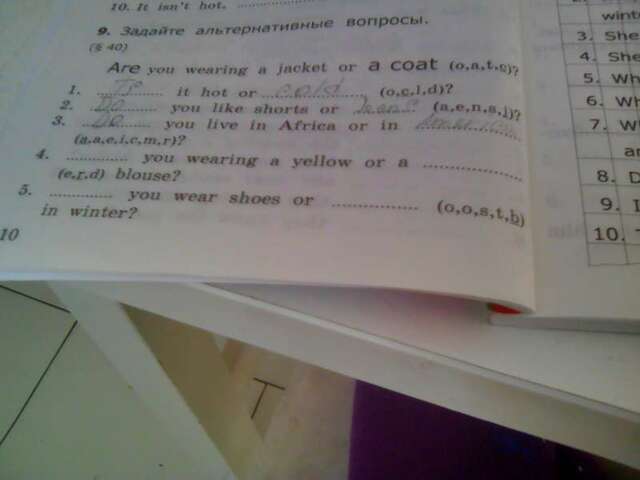 10. It isn't hot. ..............
9. Задайте альтернативные вопросы.
(§ 40)
Are you wearing a jacket or a coat (o,a,t,c)?
1. Is it hot or cold (o,c,l,d)?
2. Do you like shorts or jeans (a,e,n,s,j)?
3. Do you live in Africa or in America
(a,a,e,i,c,m,r)?
4. .............. you wearing a yellow or a ..............
(e,r,d) blouse?
5. .............. you wear shoes or .............. (o,o,s,t,b)
in winter?
10
winte
3. She
4. She
5. Wh
6. Wh
7. W
ar
8. D
9. I
10.